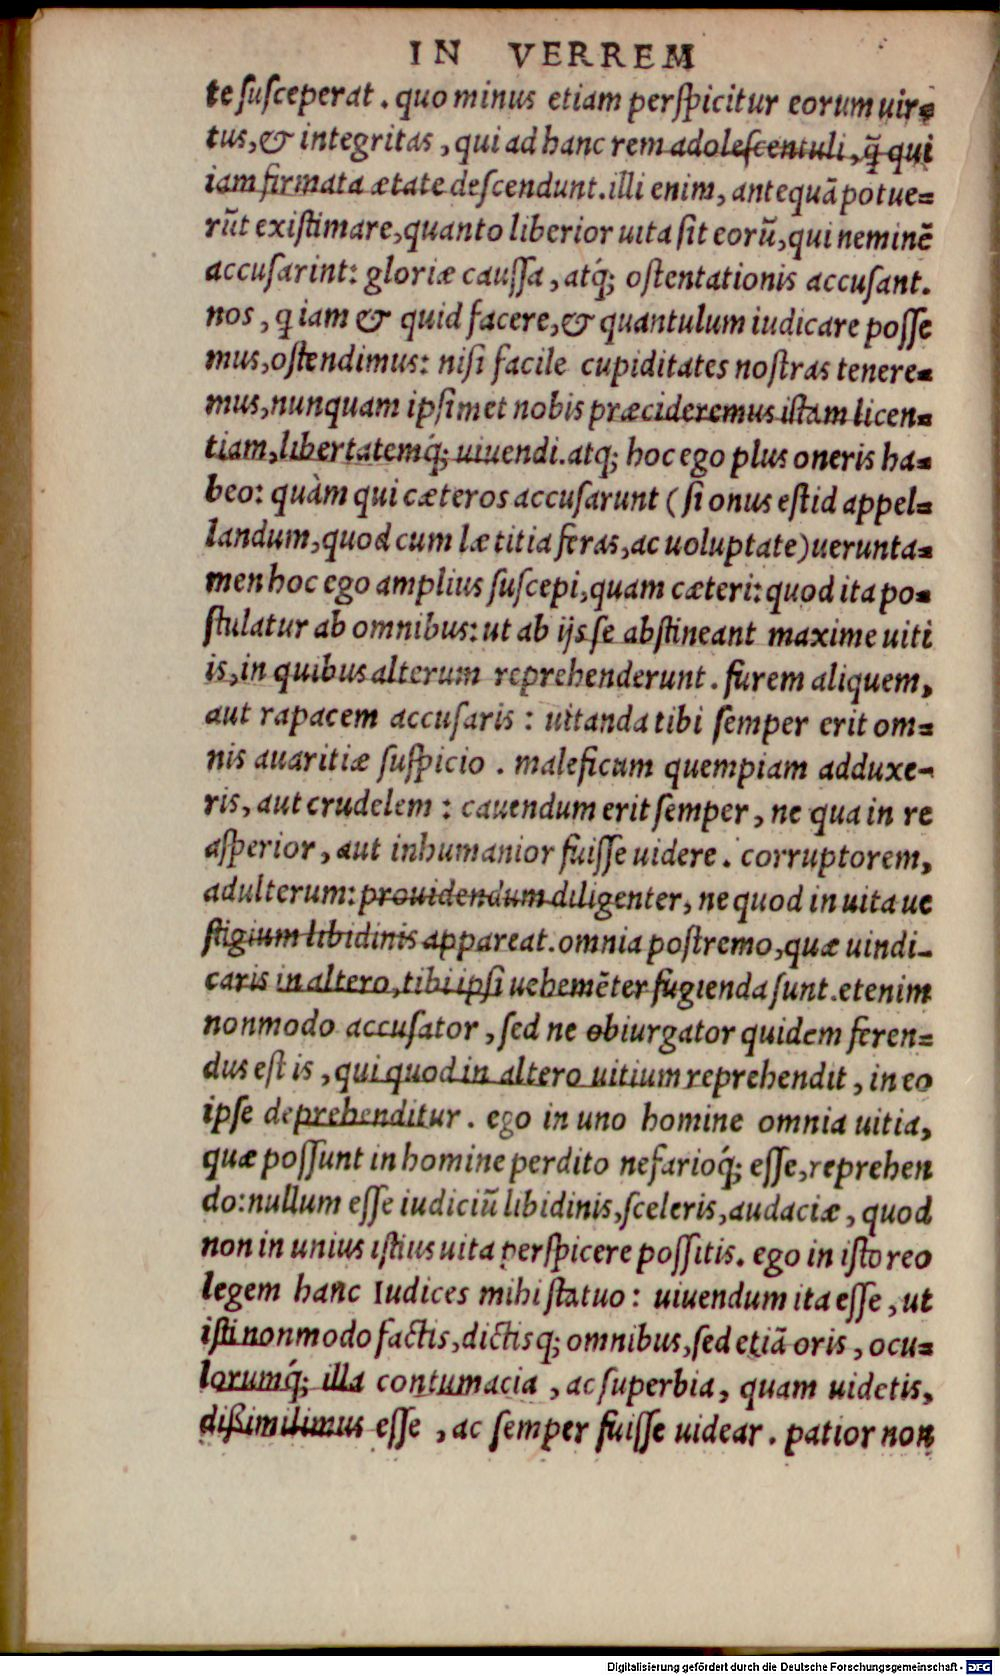 IN VERREM
te ſuſceperat. quo minus etiam perſpicitur eorum uir=
tus, & integritas, qui ad hanc rem adoleſcentuli, q̃ qui
iam firmata ætate deſcendunt. illi enim, antequã potue=
rũt exiſtimare, quanto liberior uita ſit eorũ, qui neminẽ
accuſarint: gloriæ cauſſa, atq́; oſtentationis accuſant.
nos, q iam & quid facere, & quantulum iudicare poſſe
mus, oſtendimus: niſi facile cupiditates noſtras tenere=
mus, nunquam ipſimet nobis præcideremus iſtam licen=
tiam, libertatemq́; uiuendi. atq; hoc ego plus oneris ha=
beo: quàm qui cæteros accuſarunt (ſi onus eſt id appel=
landum, quod cum lætitia feras, ac uoluptate) uerunta=
men hoc ego amplius ſuſcepi, quam cæteri: quod ita po=
ſtulatur ab omnibus: ut ab ijs ſe abſtineant maxime uiti
is, in quibus alterum reprehenderunt. furem aliquem,
aut rapacem accuſaris: uitanda tibi ſemper erit om=
nis auaritiæ ſuſpicio. maleficum quempiam adduxe-
ris, aut crudelem: cauendum erit ſemper, ne qua in re
aſperior, aut inhumanior fuiſſe uidere. corruptorem,
adulterum: prouidendum diligenter, ne quod in uita ue
ſtigium libidinis appareat. omnia poſtremo, quæ uindi-
caris in altero, tibi ipſi uehemẽter fugienda ſunt. etenim
nonmodo accuſator, ſed ne obiurgator quidem feren=
dus eſt is, qui quod in altero uitium reprehendit, in eo
ipſe deprehenditur. ego in uno homine omnia uitia,
quæ poſſunt in homine perdito nefarioq́; eſſe, reprehen
do: nullum eſſe iudiciũ libidinis, ſceleris, audaciæ, quod
non in unius iſtius uita perſpicere poſſitis. ego in iſto reo
legem hanc Iudices mihi ſtatuo: uiuendum ita eſſe, ut
iſti nonmodo factis, dictisq; omnibus, ſed etiã oris, ocu=
lorumq́; illa contumacia, ac ſuperbia, quam uidetis,
dißimilimus eſſe, ac ſemper fuiſſe uidear. patior non
Digitalisierung gefördert durch die Deutsche Forschungsgemeinschaft - DFG